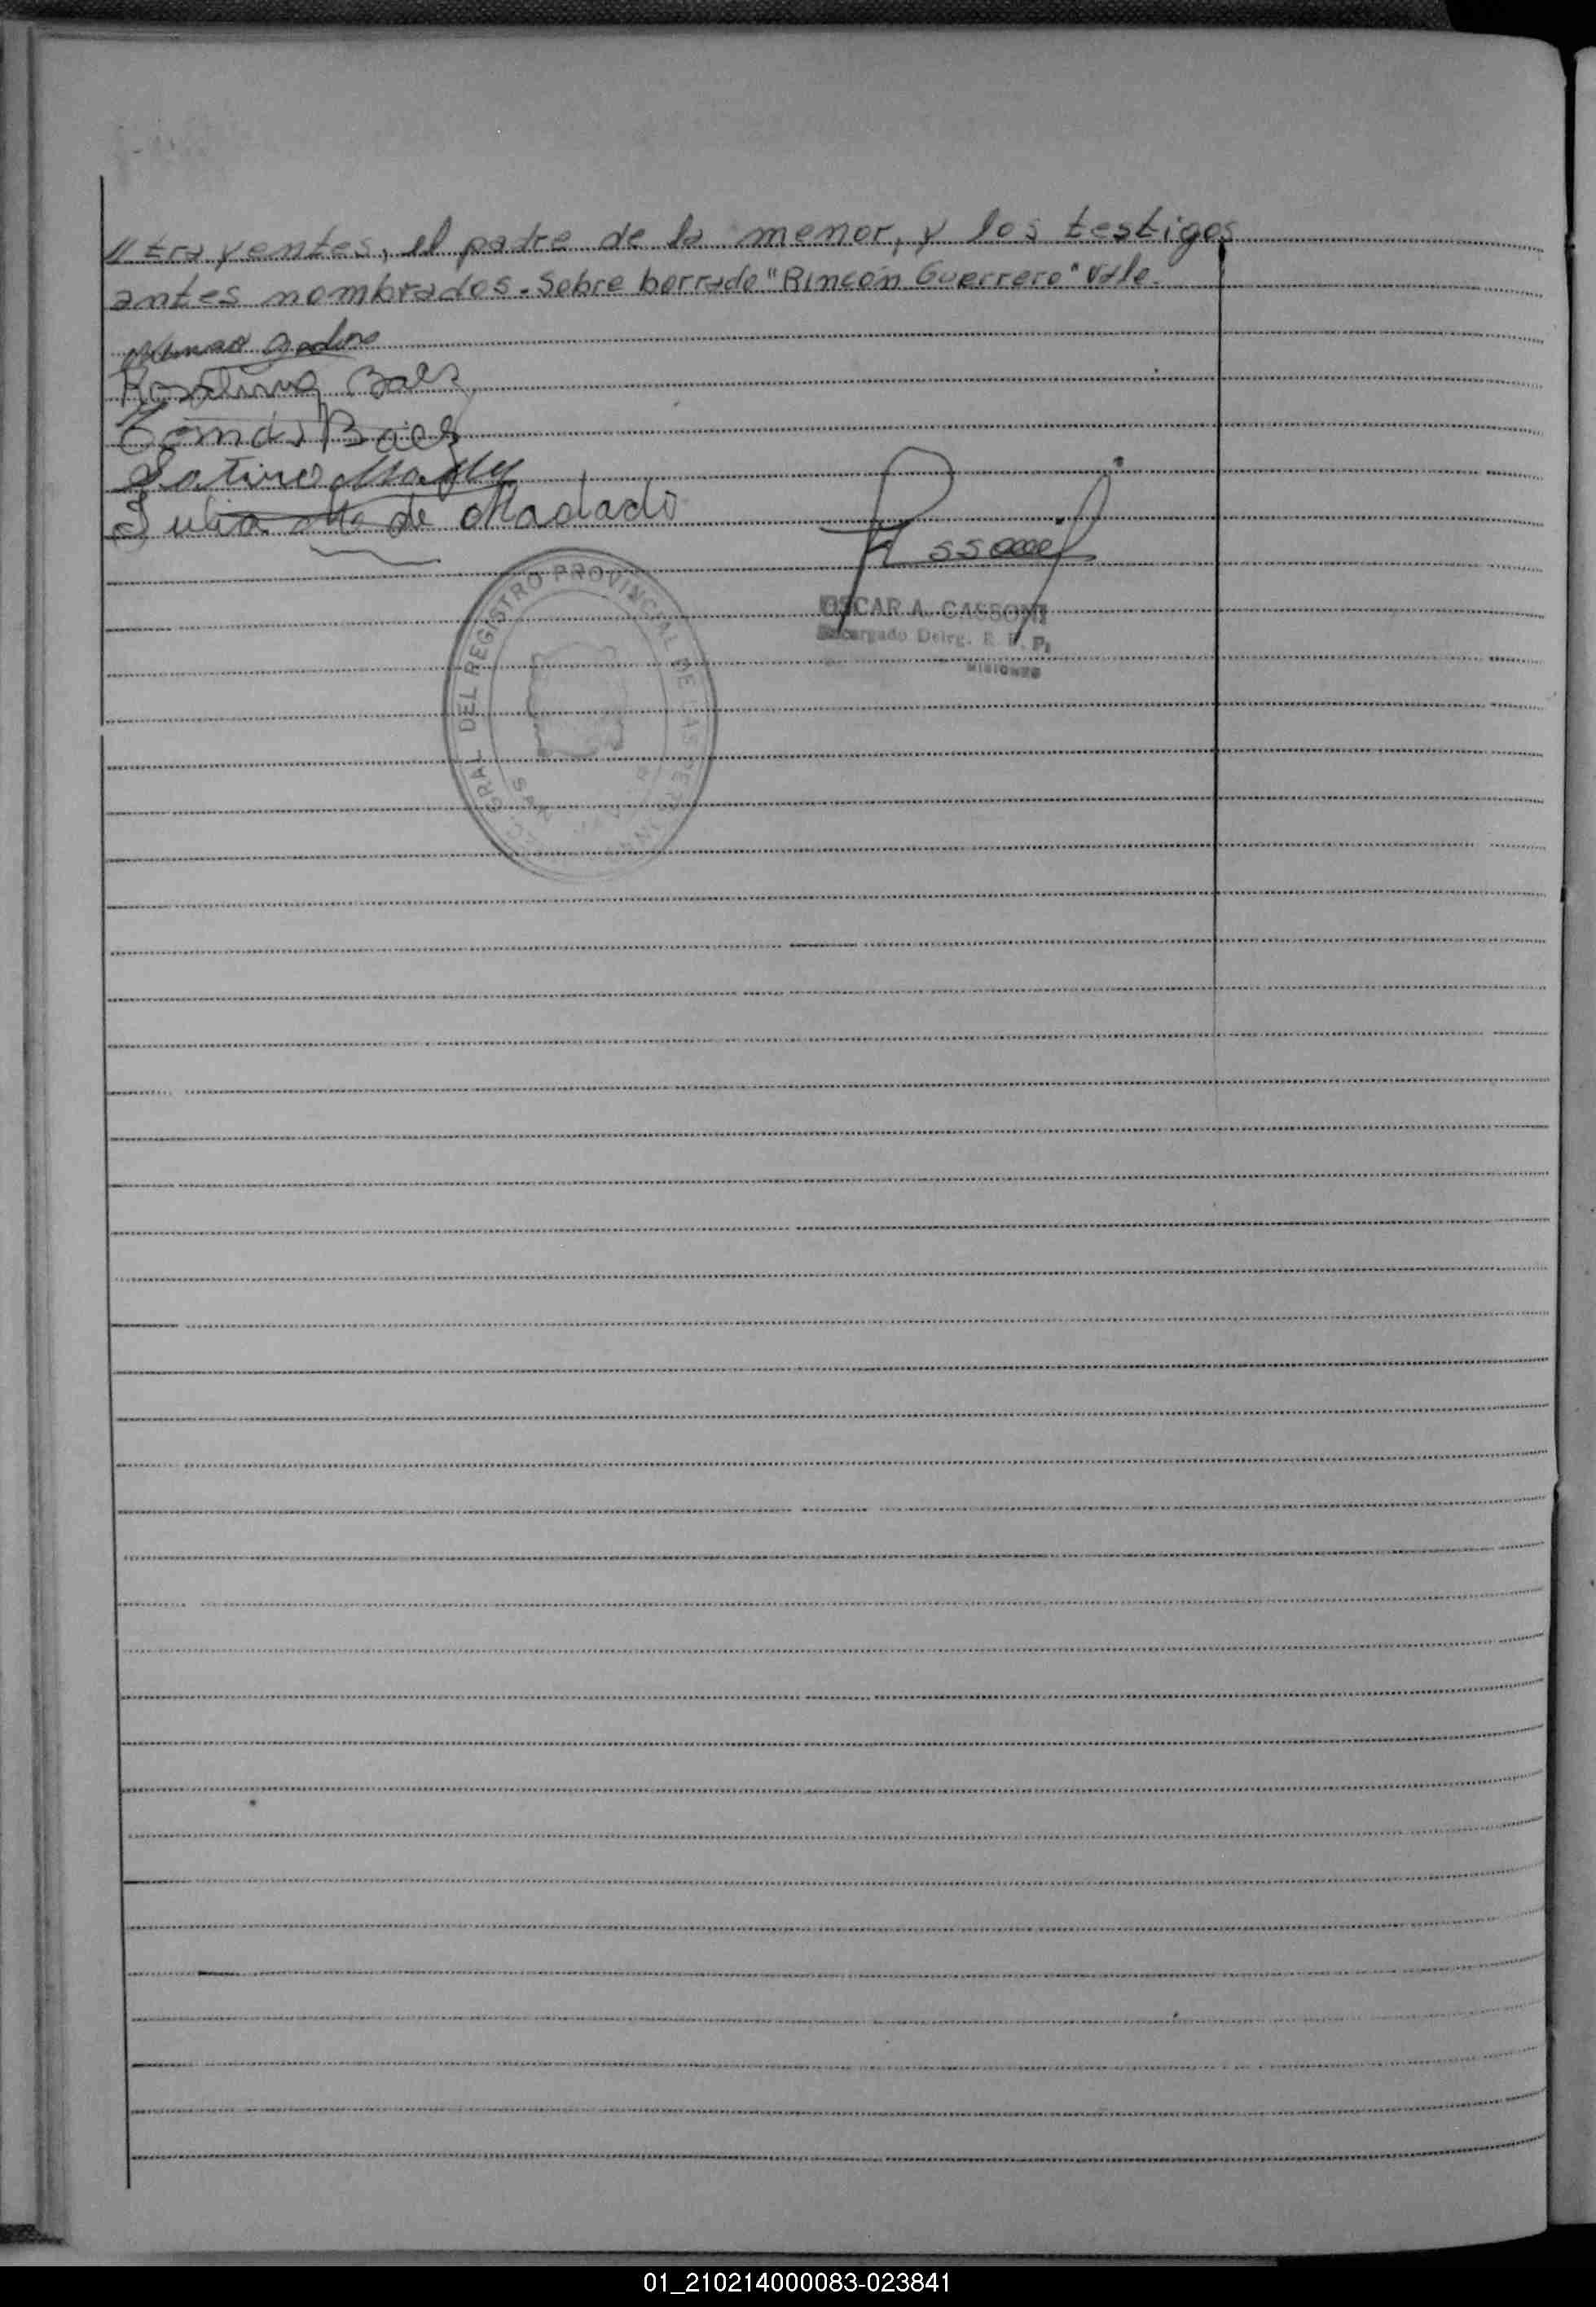 //trayentes, el padre de la menor, y los testigos
antes nombrados. Sobre borrado "Rincón Guerrero" Vale.
Baez
Tomas Baez
Julia de Machado
OSCAR A. CASSONI
Encargado Deleg. R. P. P.
MISIONES
GRAL DEL REGISTRO PROVINCIAL DE LAS PERSONAS
01_210214000083-023841